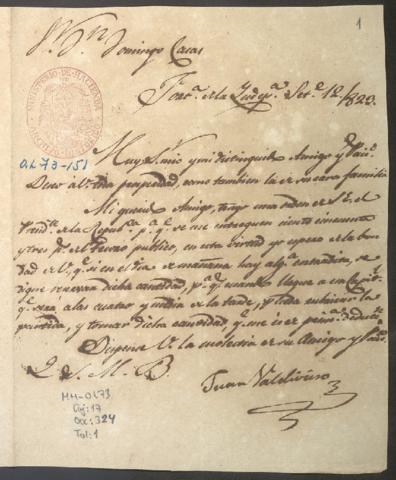 1
Sr. Dn. Domingo Casas
Fortª. de la Indepª. Setᵉ. 12/823.
MINISTERIO DE HACIENDA
O.L. 73-151
Muy Sr. mio y mi distinguido Amigo y
Deseo a V. toda prosperidad, como tambien la de su cara familia
Mi querido Amigo, tengo una orden de S.E. el
Presidᵗᵉ. de la Repubᶜª. pª. qᵉ. se me entreguen ciento cincuenta
y tres pˢ. del Tesoro publico, en esta virtud yo espero de la bon
dad de V. qᵉ. si en el dia de mañana hay algª. entradita, se
digne reservar dicha cantidad, pª. qᵉ. cuando llegue a esa Capitˡ.
qᵉ. será a las cuatro y media de la tarde, pueda la
partida, y tomar dicha cantidad qᵉ. me es de
Dispense V. la molestia de su Amigo y
Q. S. M. B.
Juan Valdivieso
MH-OL73
Caj: 17
Doc: 324
Fol: 1